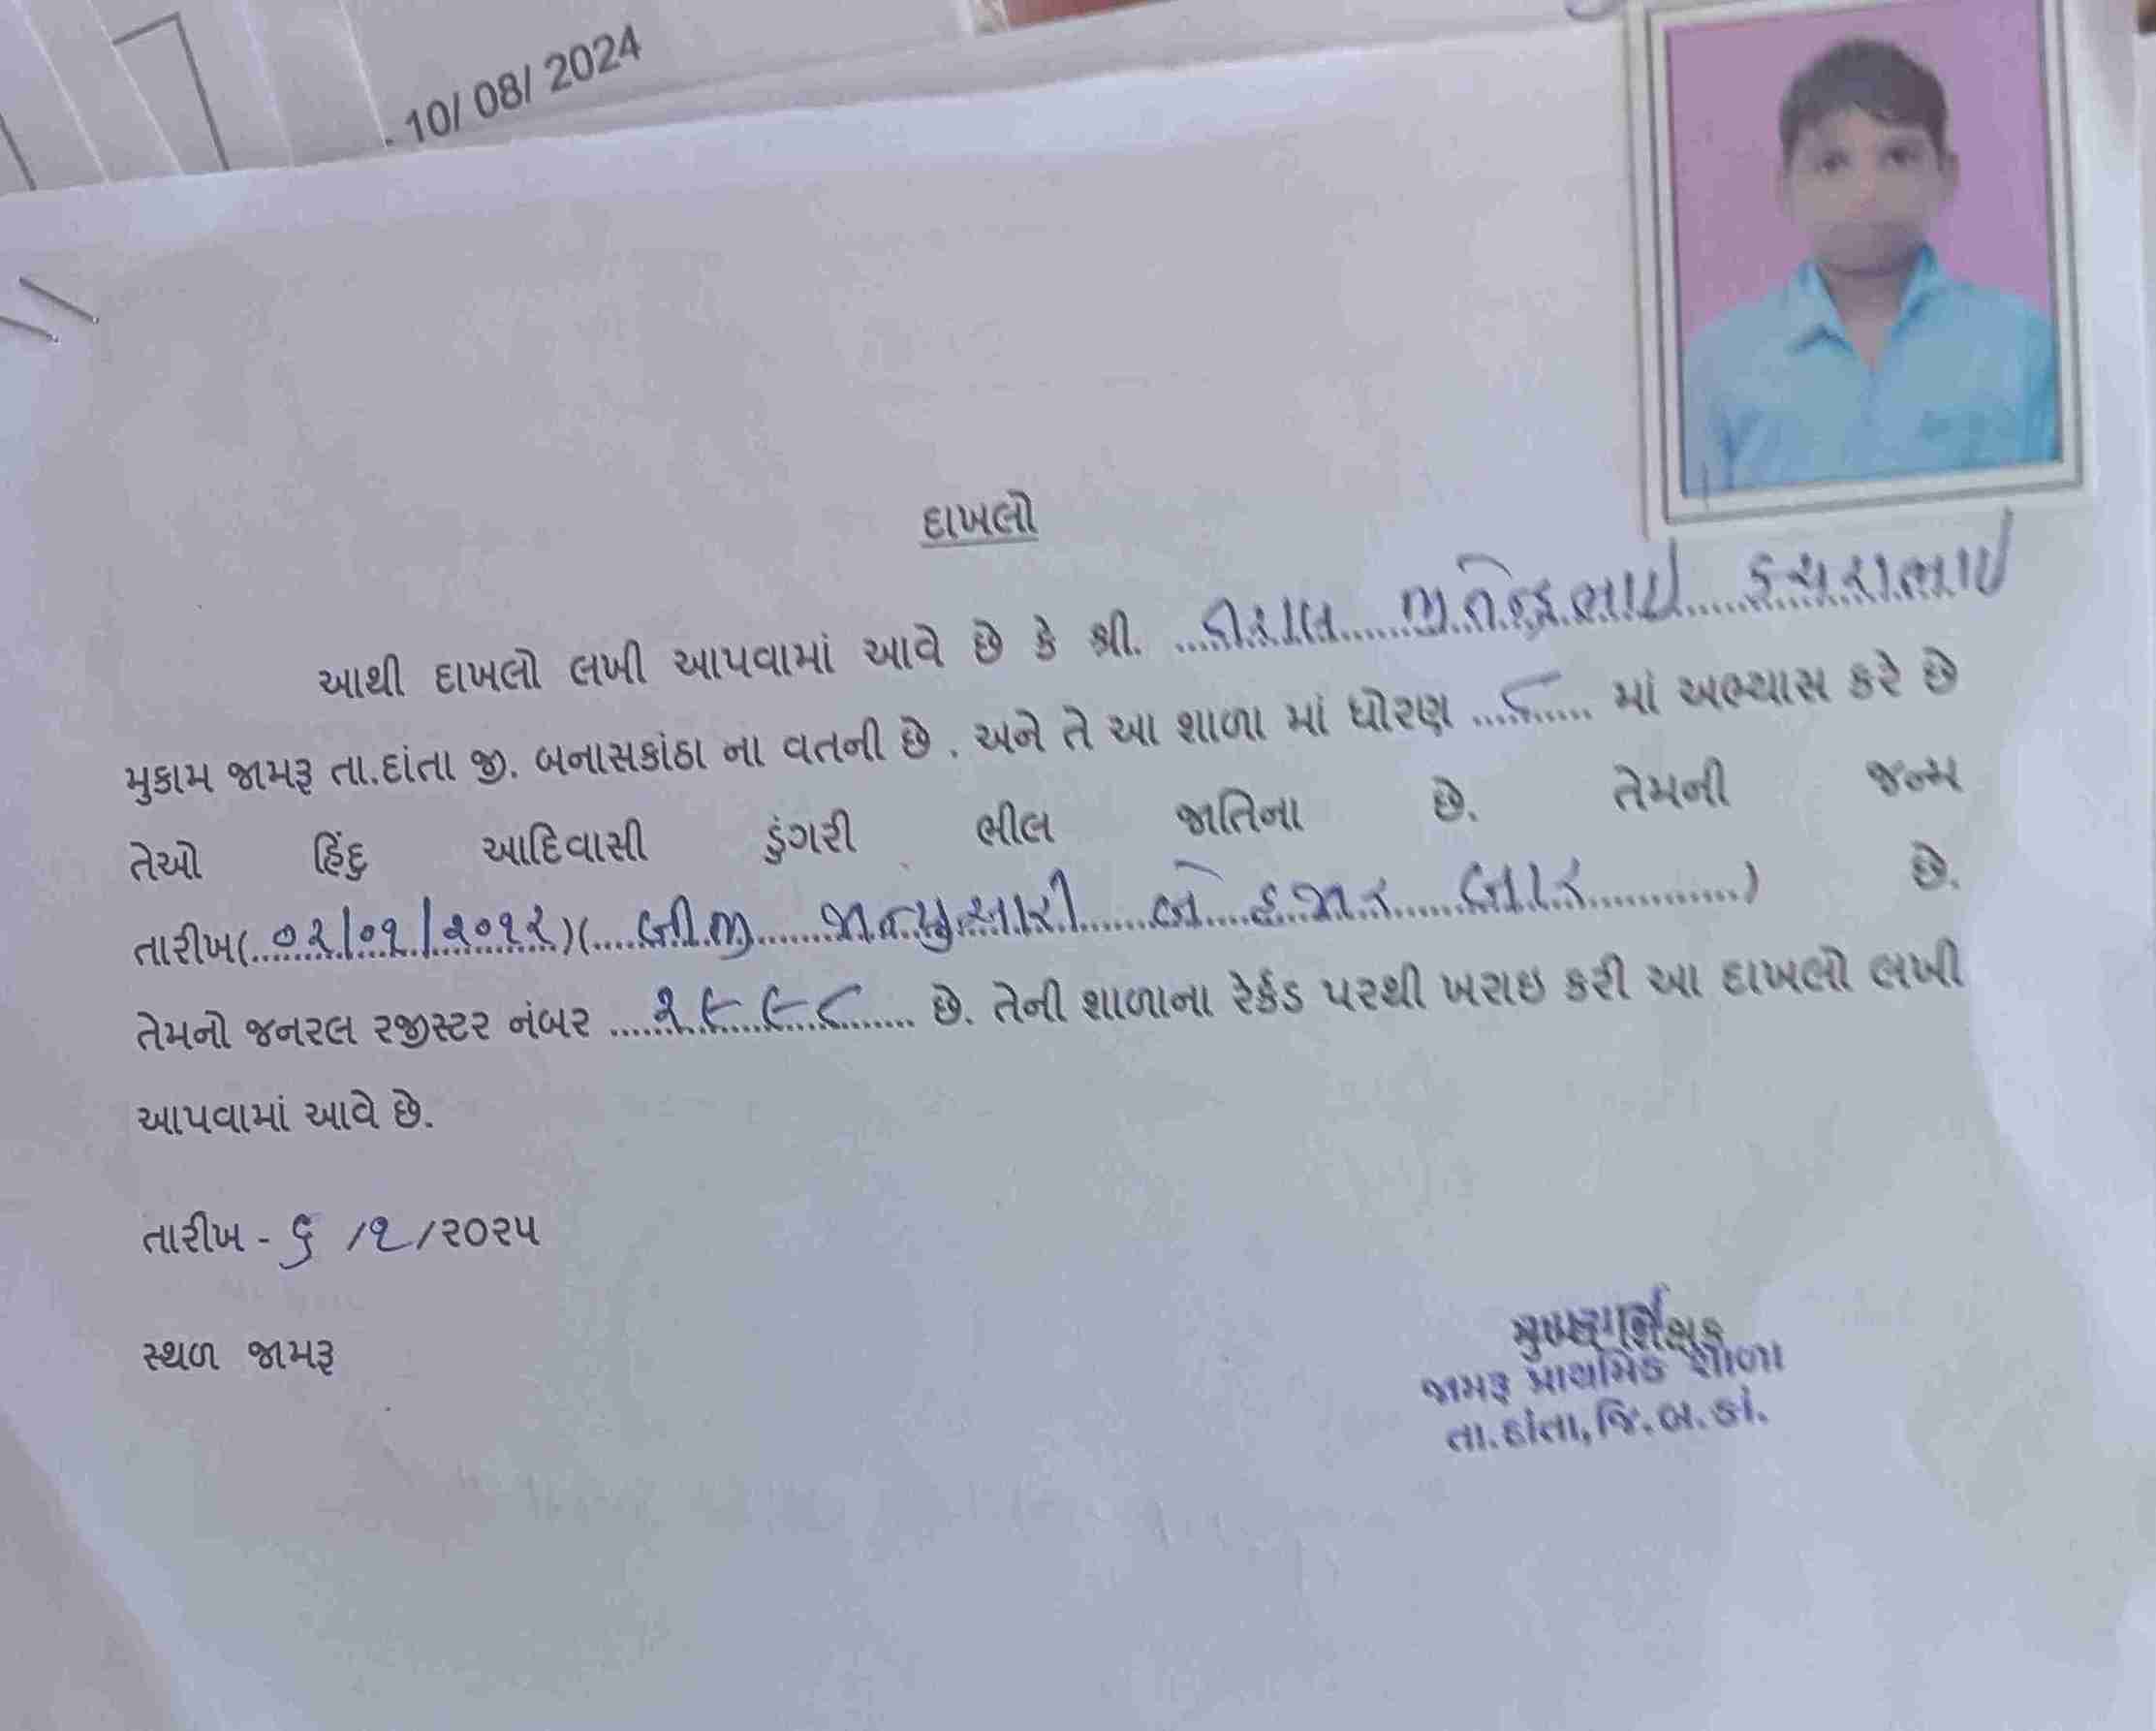 10/ 08/ 2024
દાખલો
આથી દાખલો લખી આપવામાં આવે છે કે શ્રી. ... જીતેન્દ્રભાઇ કચરાભાઇ
મુકામ જામરૂ તા.દાંતા જી. બનાસકાંઠા ના વતની છે . અને તે આ શાળા માં ધોરણ ...૮... માં અભ્યાસ કરે છે
તેઓ હિંદુ આદિવાસી ડુંગરી ભીલ જાતિના છે. તેમની જન્મ
તારીખ(..૦૨/૦૧/૨૦૧૨)(...બીજી જાન્યુઆરી બે હજાર બાર...) છે.
તેમનો જનરલ રજીસ્ટર નંબર ...૨૯૯૮... છે. તેની શાળાના રેર્કડ પરથી ખરાઇ કરી આ દાખલો લખી
આપવામાં આવે છે.
તારીખ - ૬ /૧/૨૦૨૫
સ્થળ જામરૂ
જામરૂ પ્રાથમિક શાળા
તા.દાંતા, જિ.બ.કાં.